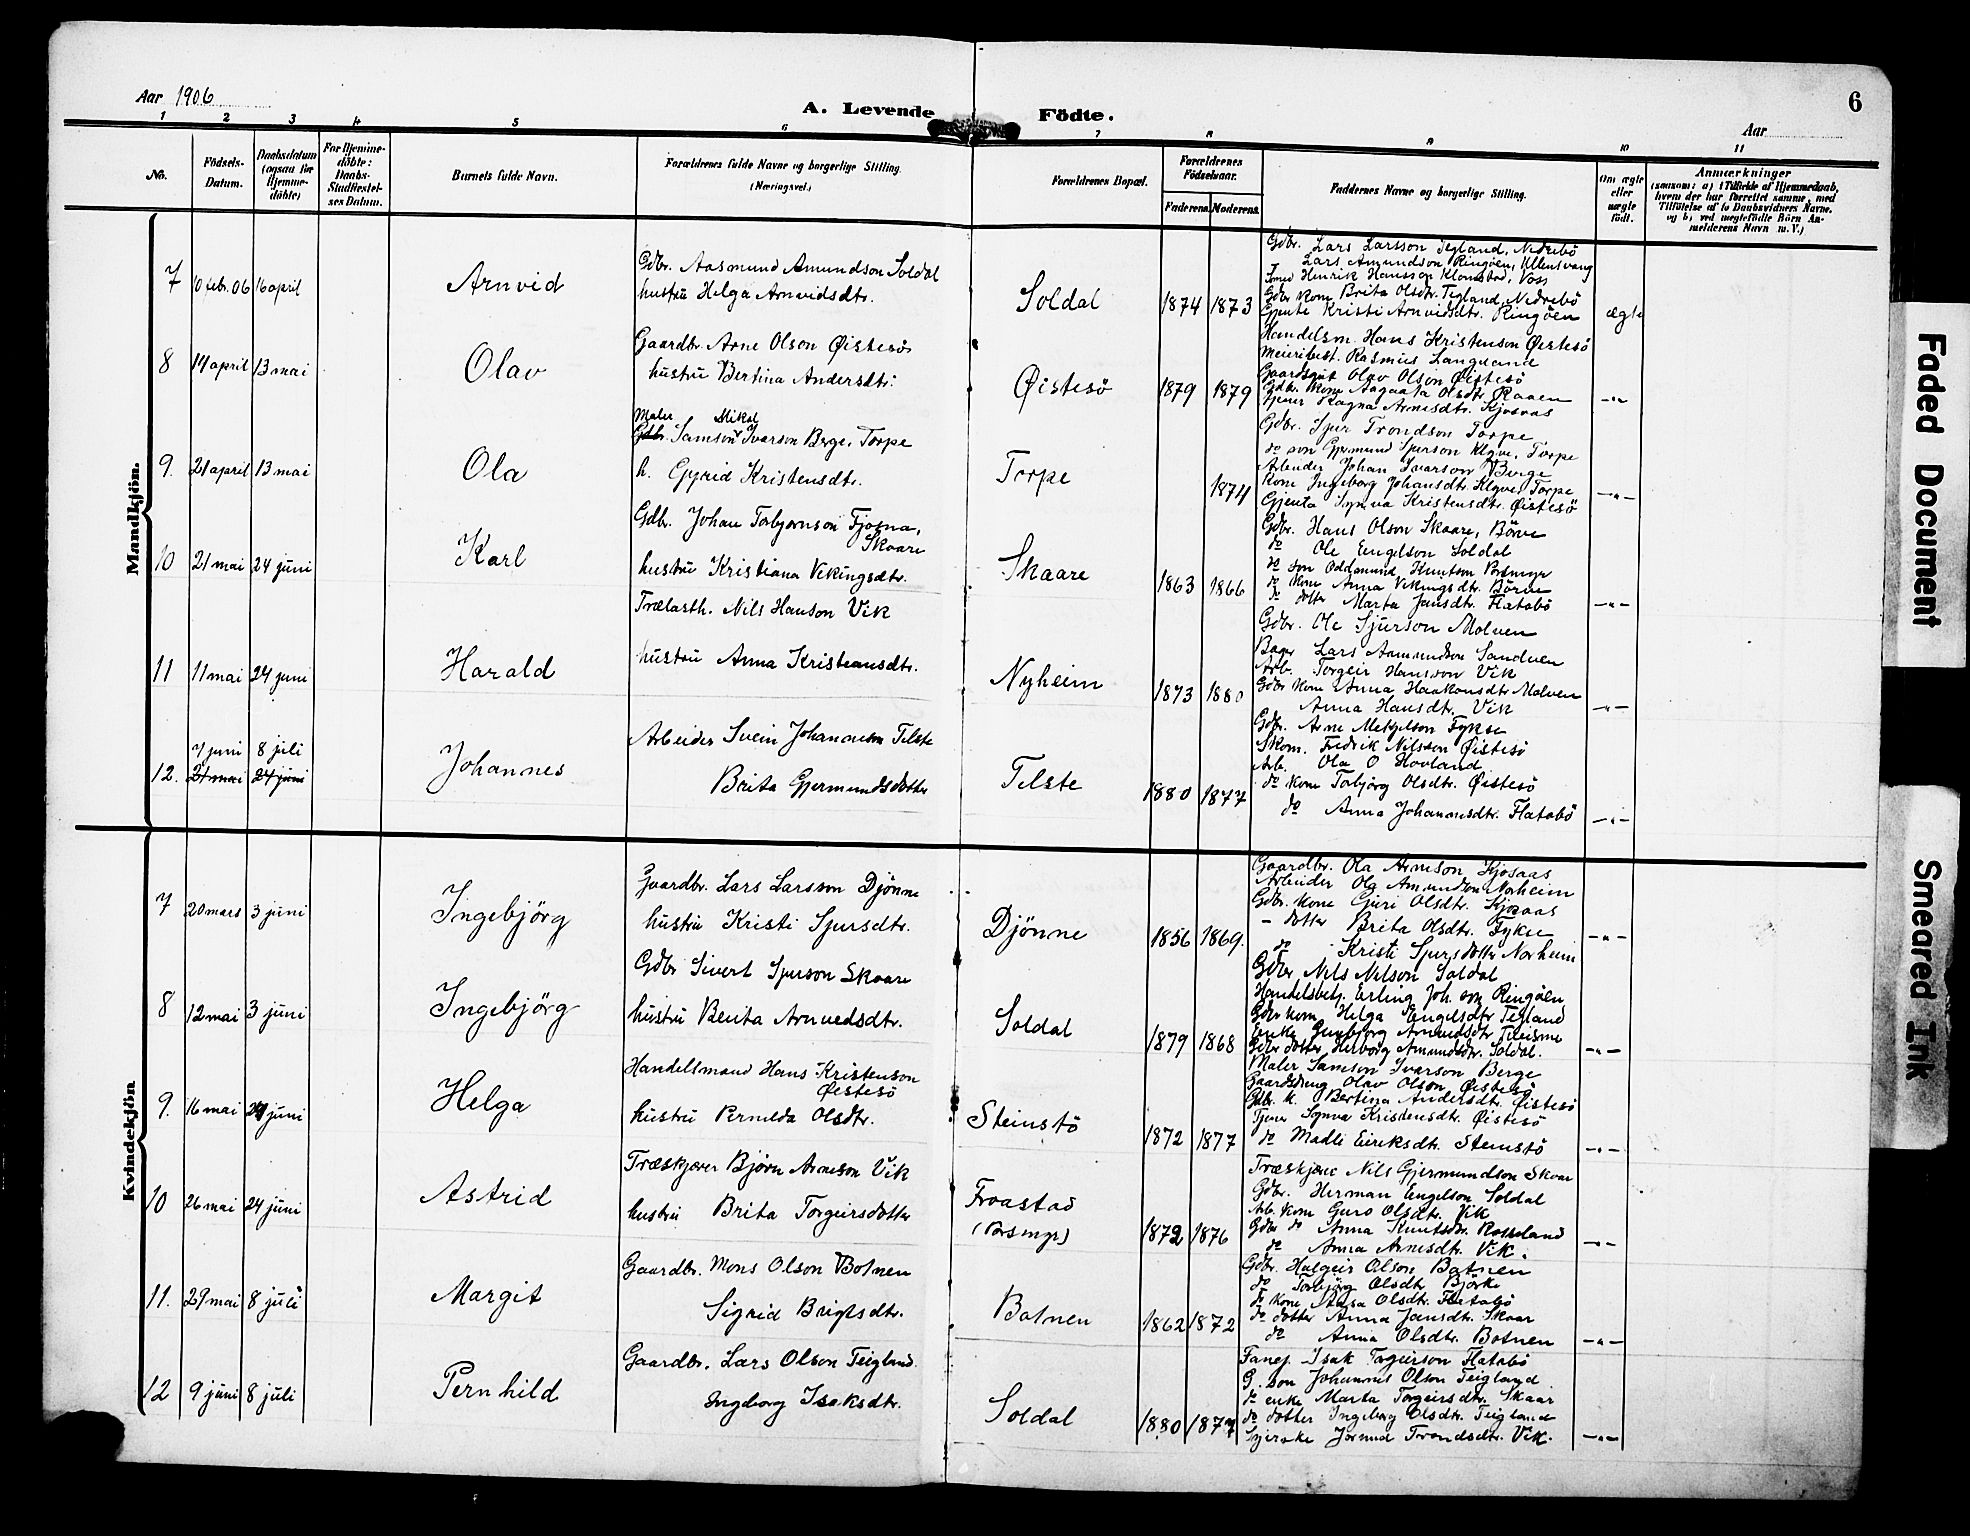 Aar 1906
A. Levende Födte.
6
Aar
1 2 3 4 5 6 7 8 9 10 11
No.
Födsels-Datum.
Daabsdatum (ogsaa for Hjemme-döbte)
For Hjemme-döbte: Daabs-Stadfæstel-ses Datum.
Barnets fulde Navn.
Forældrenes fulde Navne og borgerlige Stilling. (Næringsvei.)
Forældrenes Bopæl.
Forældrenes Födselsaar.
Faderens. Moderens.
Faddernes Navne og borgerlige Stilling.
Om ægte eller uægte födt.
Anmærkninger
(saasom: a) i Tilfælde af Hjemmedaab, hvem der har forrettet samme, med Tilföielse af to Daabsvidners Navne. og b) ved uægtefödte Börn An-melderens Navn m. V.)
Mandkjön.
7 10 febr. 06 16 april Arnvid
Gdbr. Aasmund Amundson Soldal
hustru Helga Arnvidsdtr.
Soldal 1874 1873
Gdbr. Lars Larsson Tegland, Nedrebö
Lars Amundson Ringöen, Ullensvang
Smed Henrik Hansson Klomstad, Voss
Gdbr kone Brita Olsdtr. Tegland, Nedrebö
Gjente Kristi Arnvidsdtr. Ringöen
ægte
8 14 april 13 mai Olav
Gaardbr. Arne Olson Øistesö
hustru Bertina Andersdtr.
Øistesö 1879 1879
Handelsm. Hans Kristenson Øistesö
Meieribest. Rasmus Langeland
Gaardsgut Olav Olson Øistesö
Gdbr. kone Aagaata Olsdtr. Raaen
Tjener Ragna Arnesdtr. Kjosaas
—"—
9. 21 april 13 mai Ola
Maler Mikal
Gdbr. Samson Ivarson Berge, Torpe
h. Gyrid Kristensdtr.
Torpe 1874
Gdbr. Sjur Trondson Torpe
do son Gjermund Sjurson Klyve, Torpe
Arbeider Johan Ivarson Berge
Kone Ingeborg Johansdtr. Klyve, Torpe
Gjenta Synva Kristensdtr. Øistesö
—"—
10 21 mai 24 juni Karl
Gdbr. Johan Torbjornson Fjosna,
Skaare
hustru Kristiana Vikingsdtr.
Skaare 1863 1866
Gdbr. Hans Olson Skaare, Börve
do Ole Engelson Soldal
do son Oddmund Knutson Porsmyr
do kone Anna Vikingsdtr. Börve
do dotter Marta Jansdtr. Flatabö
—"—
11 11 mai 24 juni Harald
Trælasth. Nils Hanson Vik
hustru Anna Kristiansdtr.
Nyheim 1873 1880
Gdbr. Ole Sjurson Molven
Bager Lars Aamundson Sandven
Arb. Torgeir Hansson Vik
Gdbr kone Anna Haakonsdtr Molven
Anna Hansdtr. Vik
—"—
7 juni 8 juli
12. 21 mai 24 juni Johannes
Arbeider Svein Johannesson Telste
Brita Gjermundsdotter
Telste 1880 1877
Gdbr. Arne Metzelson Fykse
Skom. Fredrik Nilsson Øistesö
Arb. Ola O Hovland
do kone Torbjörg Olsdtr. Øistesö
do Anna Johannesdtr. Flatabö
—"—
Kvindekjön
7 20 mars 3 juni Ingebjörg
Gaardbr. Lars Larsson Djönne
hustru Kristi Sjursdtr.
Djönne 1856 1869.
Gaardbr. Ola Arneson Kjosaas
Arbeider Ola Amundson Norheim
Gdbr. kone Guri Olsdtr. Kjosaas
— dotter Brita Olsdtr. Fykse
do Kristi Sjursdotter Norheim
—"—
8 12 mai 3 juni Ingebjörg
Gdbr Sivert Sjurson Skaare
hustru Berita Arnvedsdtr.
Soldal 1879 1868
Gdbr Nils Nilson Soldal
Handelsbetj. Erling Joh. son Ringöen
Gdbr kone Helga Engelsdtr Tegland
Enke Gunbjörg Amundsdtr
Gdbr dotter Herborg Amundsdtr. Soldal.
—"—
9. 16 mai 24 juni Helga
Handelsmand Hans Kristenson
Øistesö
hustru Pernilda Olsdtr.
Steinstö 1872 1877
Maler Samson Ivarson Berge
Gaardsdreng Olav Olson Øistesö
Gdbr. k. Bertina Andersdtr. Øistesö
Tjener Synva Kristensdtr. Øistesö
do Madli Eireksdtr. Steinstö
—"—
10 26 mai 24 juni Astrid
Træskjærer Björn Arneson Vik
hustru Brita Torgeirsdotter
Froastad
(Porsmyr) 1872 1876
Træskjærer Nils Gjermundson Skaar
Gdbr. Herman Engelson Soldal
Arb. kone Guro Olsdtr. Vik
Gdbr do Anna Knutsdtr. Rosseland
do Anna Arnesdtr. Vik.
—"—
11. 29 mai 8 juli Margit
Gaardbr. Mons Olson Botnen
Sigrid Brigtsdtr.
Botnen 1862 1872
Gdbr. Halgeir Olson Botnen
do Torbjörg Olsdtr Björke
do kone Anna Olsdtr. Flatabö
do dotter Anna Jansdtr. Skaar
do Anna Olsdtr. Botnen
—"—
12 9 juni 8 juli Pernhild
Gaardbr. Lars Olson Teigland
Ingeborg Isaksdtr.
Soldal 1880 1877
Fanej. Isak Torgeirson Flatabö
G. son Johannes Olson Teigland
do enke Marta Torgeirsdtr. Skaar
do dotter Ingeborg Olsdtr. Teigland
Syerske Jormud Trondsdtr. Vik.
—"—
Faded Document
Smeared Ink